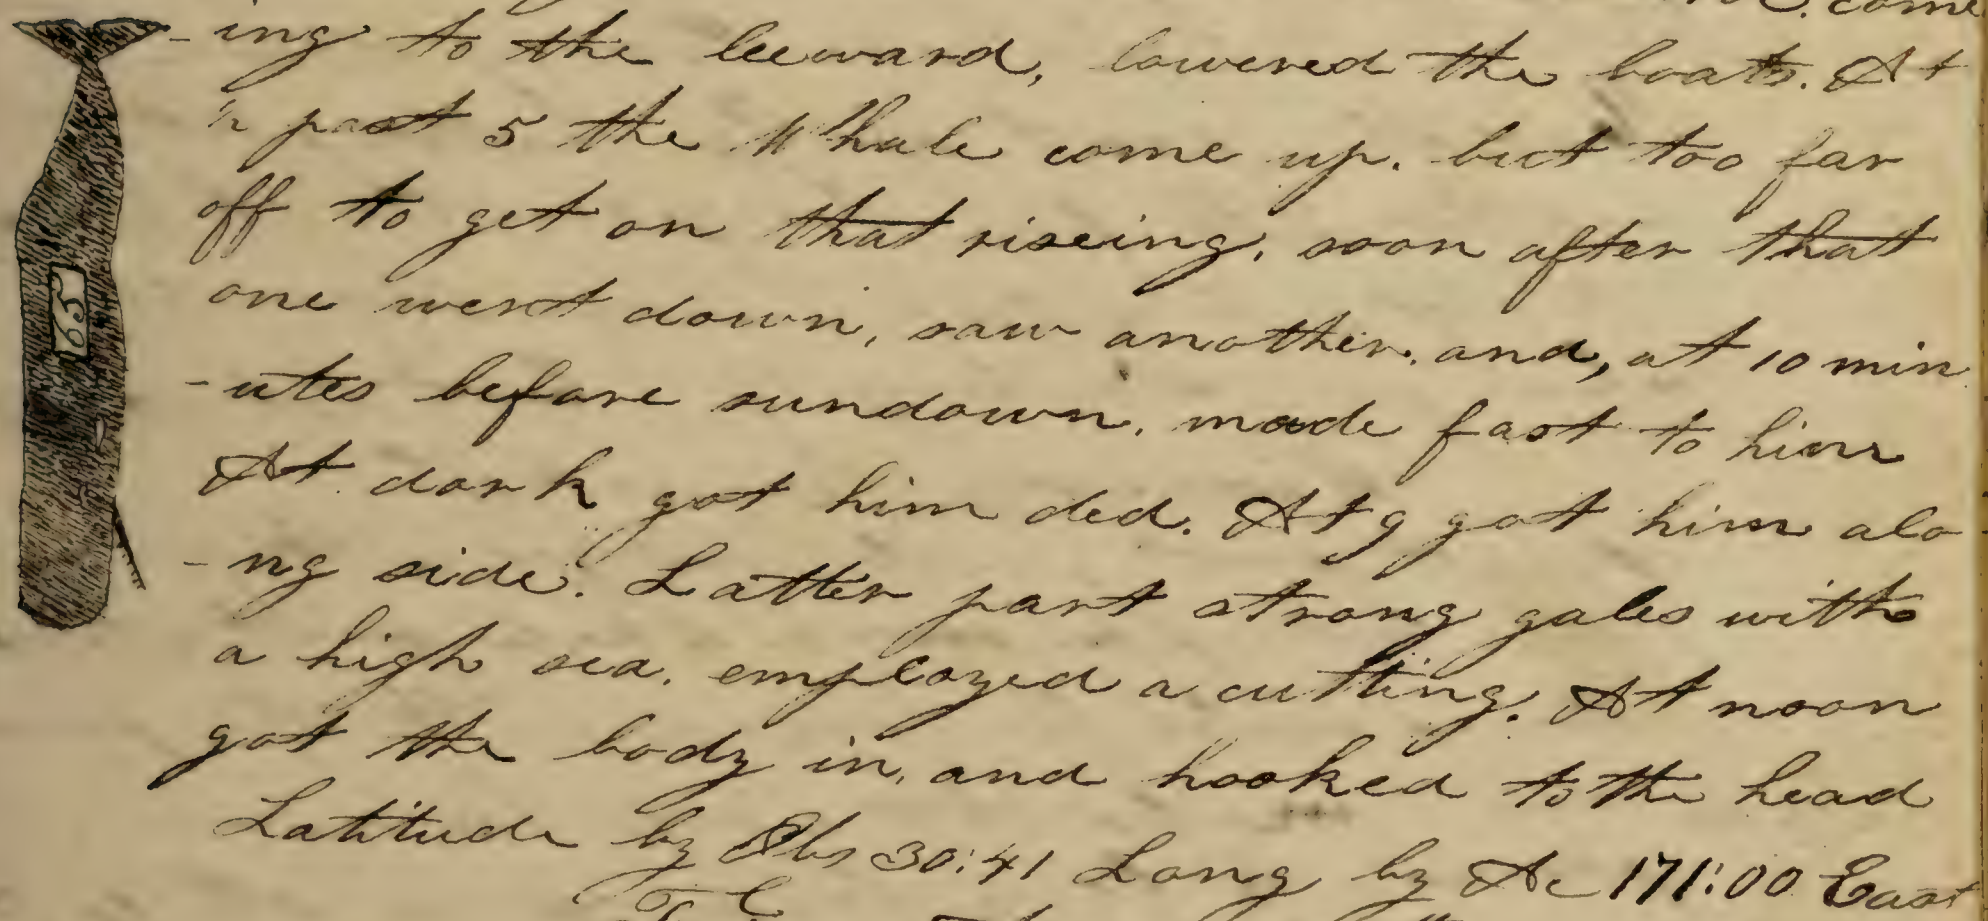 come
-ing to the leeward, lowered the boats. At
½ past 5 the Whale come up. but too far
off to get on that riseing, soon after that
one went down, saw another, and, at 10 min
-utes before sundown, made fast to him
At dark got him ded. At 9 got him alo
-ng side. Latter part strong gales with
a high sea. employed a cutting. At noon
got the body in, and hooked to the head
Latitude by Obs 30:41 Long by Ac 171:00 East
65